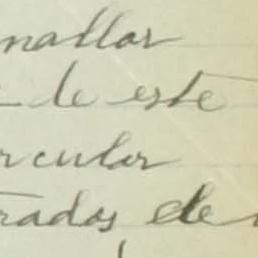 mallor
de este
rcular
rados de